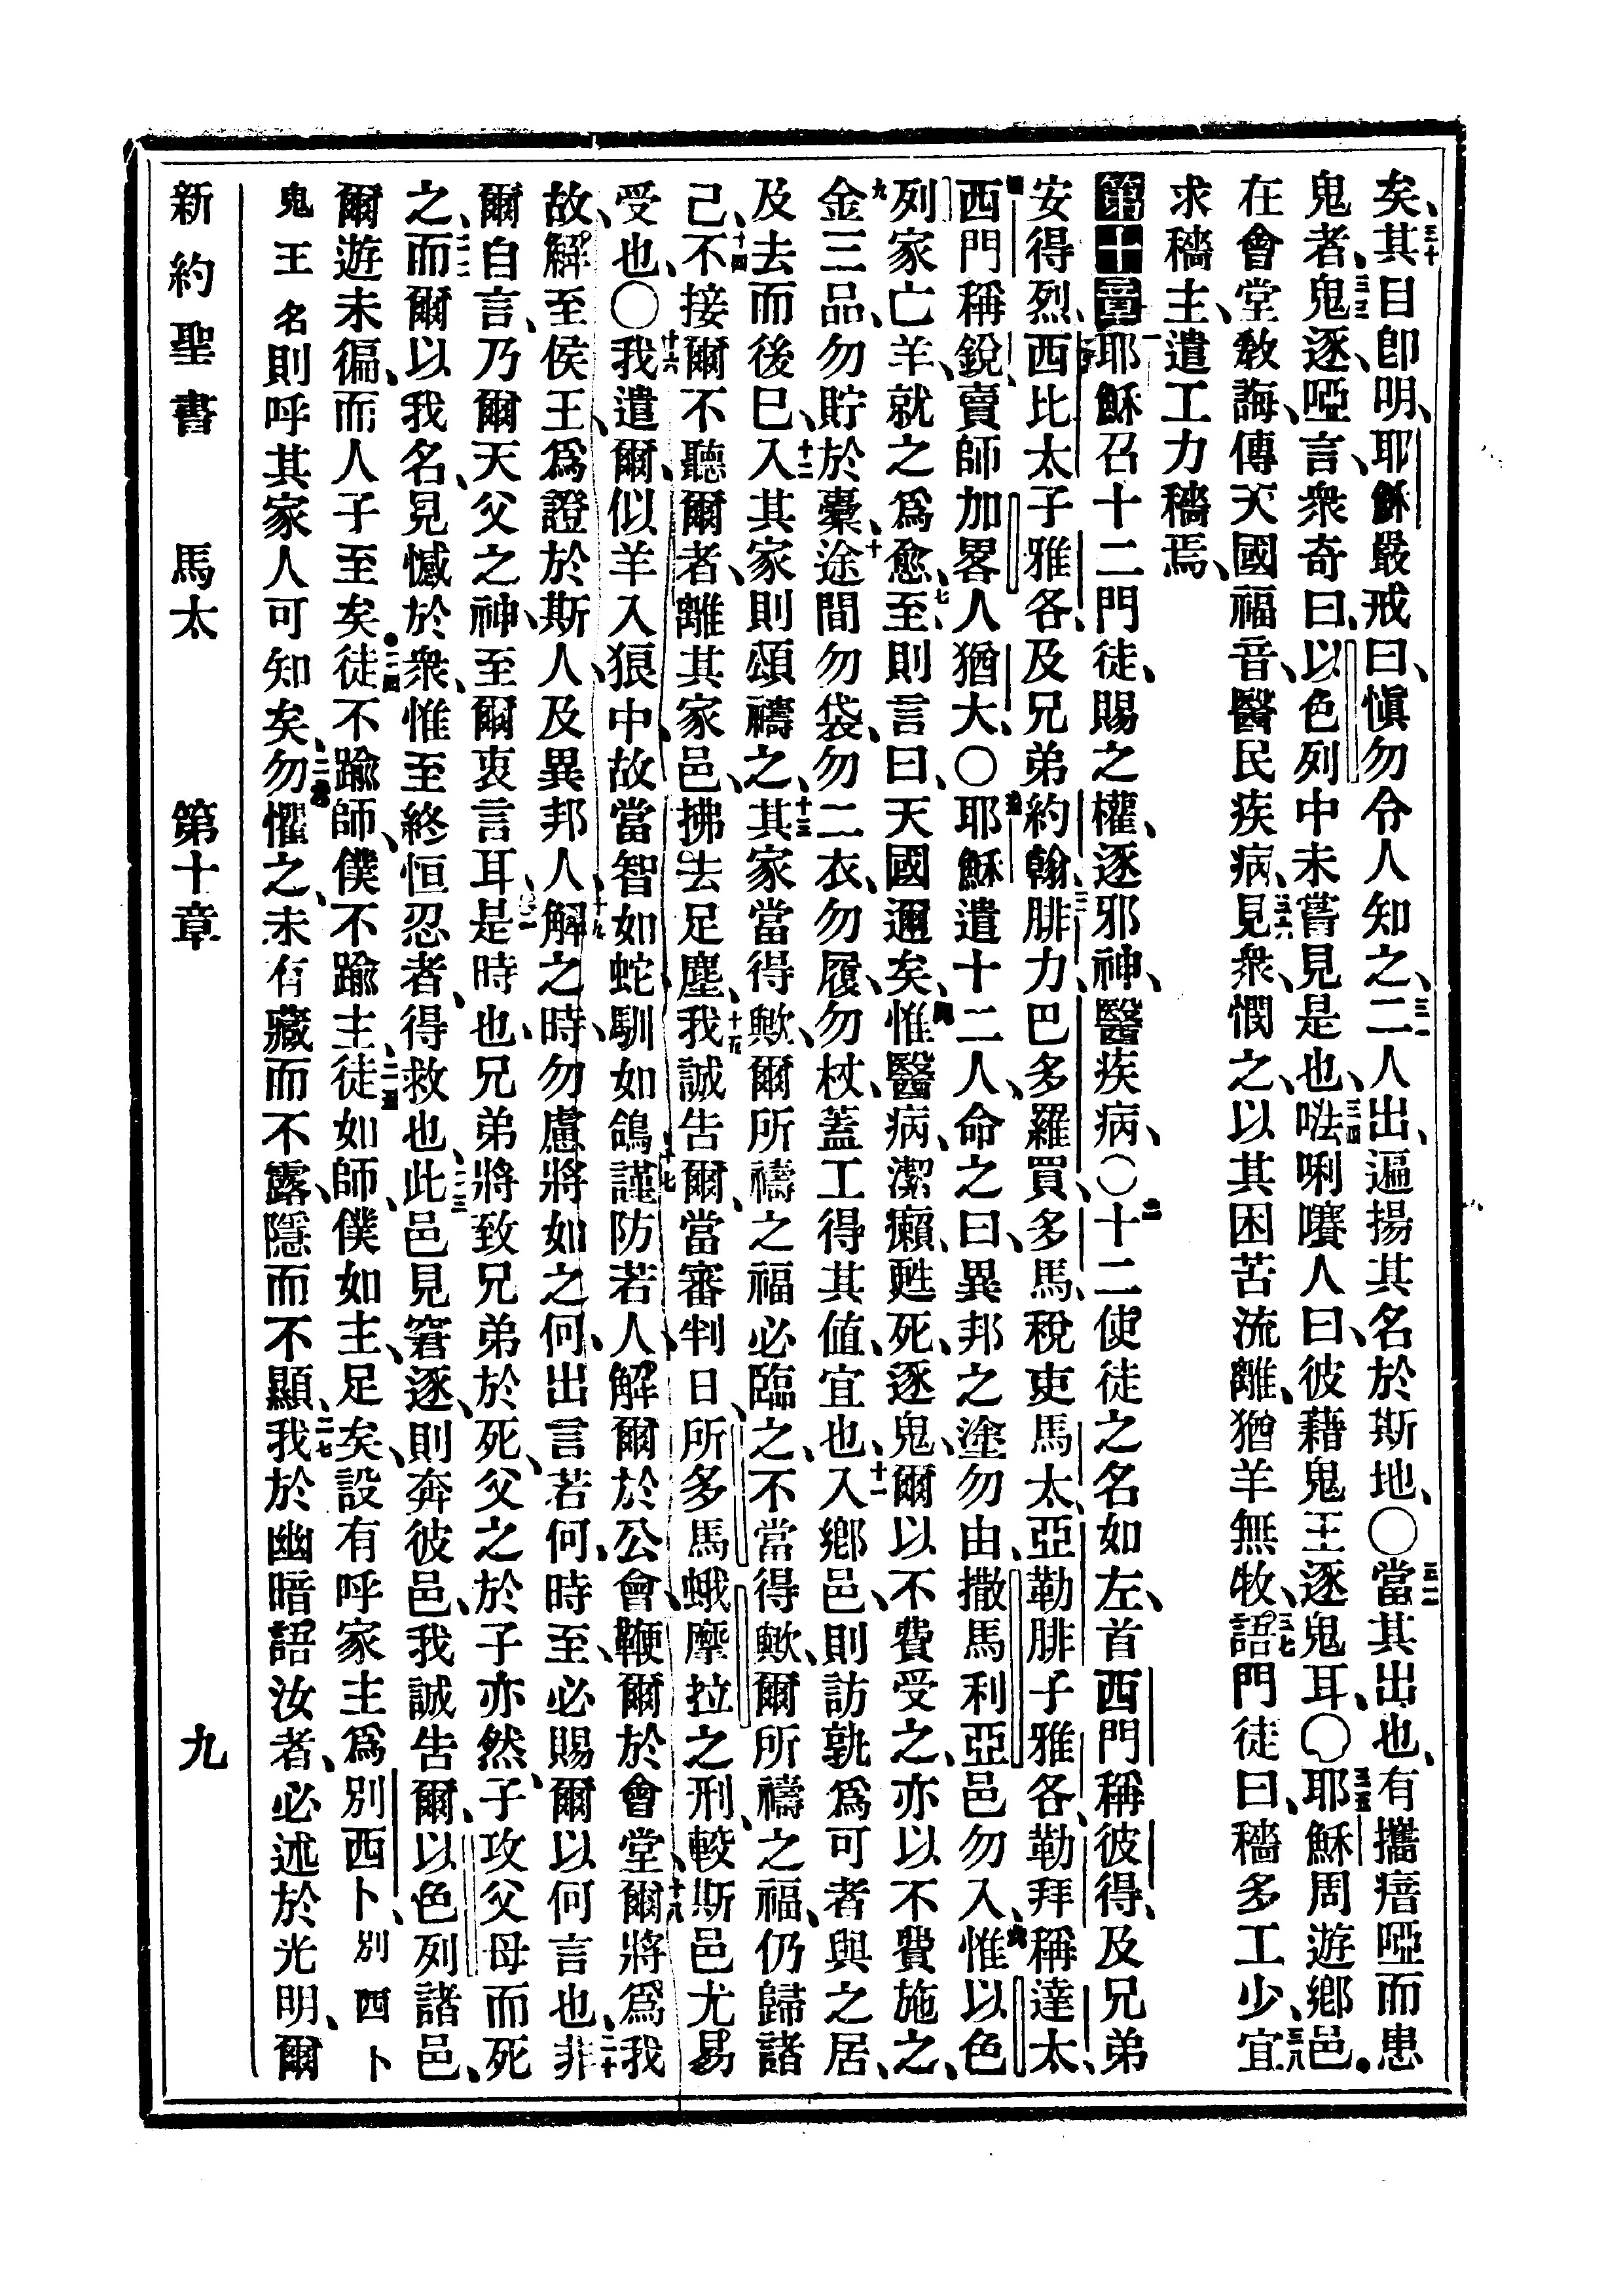 矣、三十其目卽明、耶穌嚴戒曰、愼勿令人知之、三一二人出、遍揚其名於斯地、〇三二當其出也、有攜瘖啞而患
鬼者、三三鬼逐、啞言、衆奇曰、以色列中未嘗見是也、三四𠵽唎㘔人曰、彼藉鬼王逐鬼耳、〇三五耶穌周遊鄉邑、
在會堂敎誨、傳天國福音、醫民疾病、三六見衆、憫之、以其困苦流離、猶羊無牧、三七語門徒曰、穡多工少、三八宜
求穡主、遣工力穡焉、
第十章一耶穌召十二門徒、賜之權、逐邪神、醫疾病、〇二十二使徒之名如左、首西門稱彼得、及兄弟
安得烈、西比太子雅各、及兄弟約翰、三腓力、巴多羅買、多馬、稅吏馬太、亞勒腓子雅各、勒拜稱達太、
四西門稱銳、賣師加畧人猶大、〇五耶穌遣十二人、命之曰、異邦之塗勿由、撒馬利亞邑勿入、六惟以色
列家亡羊、就之爲愈、七至則言曰、天國邇矣、八惟醫病、潔癩、甦死、逐鬼、爾以不費受之、亦以不費施之、
九金三品、勿貯於橐、十途間勿袋、勿二衣、勿履、勿杖、蓋工得其値、宜也、十一入鄉邑、則訪孰爲可者與之居、
及去而後已、十二入其家、則頌禱之、十三其家當得歟、爾所禱之福必臨之、不當得歟、爾所禱之福、仍歸諸
己、十四不接爾不聽爾者、離其家邑、拂去足塵、十五我誠告爾、當審判日、所多馬蛾摩拉之刑、較斯邑尤易
受也、〇十六我遣爾、似羊入狼中、故當智如蛇、馴如鴿、十七謹防若人、解爾於公會、鞭爾於會堂、十八爾將爲我
故、解至侯王、爲證於斯人、及異邦人、十九解之時、勿慮將如之何、出言若何、時至、必賜爾以何言也、二十非
爾自言、乃爾天父之神、至爾衷言耳、二一是時也、兄弟將致兄弟於死、父之於子亦然、子攻父母而死
之、二二而爾以我名、見憾於衆、惟至終恒忍者、得救也、二三此邑見窘逐、則奔彼邑、我誠告爾、以色列諸邑、
爾遊未徧、而人子至矣、二四徒不踰師、僕不踰主、二五徒如師、僕如主、足矣、設有呼家主爲別西卜、別西卜
鬼王名則呼其家人可知矣、二六勿懼之、未有藏而不露、隱而不顯、二七我於幽暗語汝者、必述於光明、爾
新約聖書 馬太 第十章 九